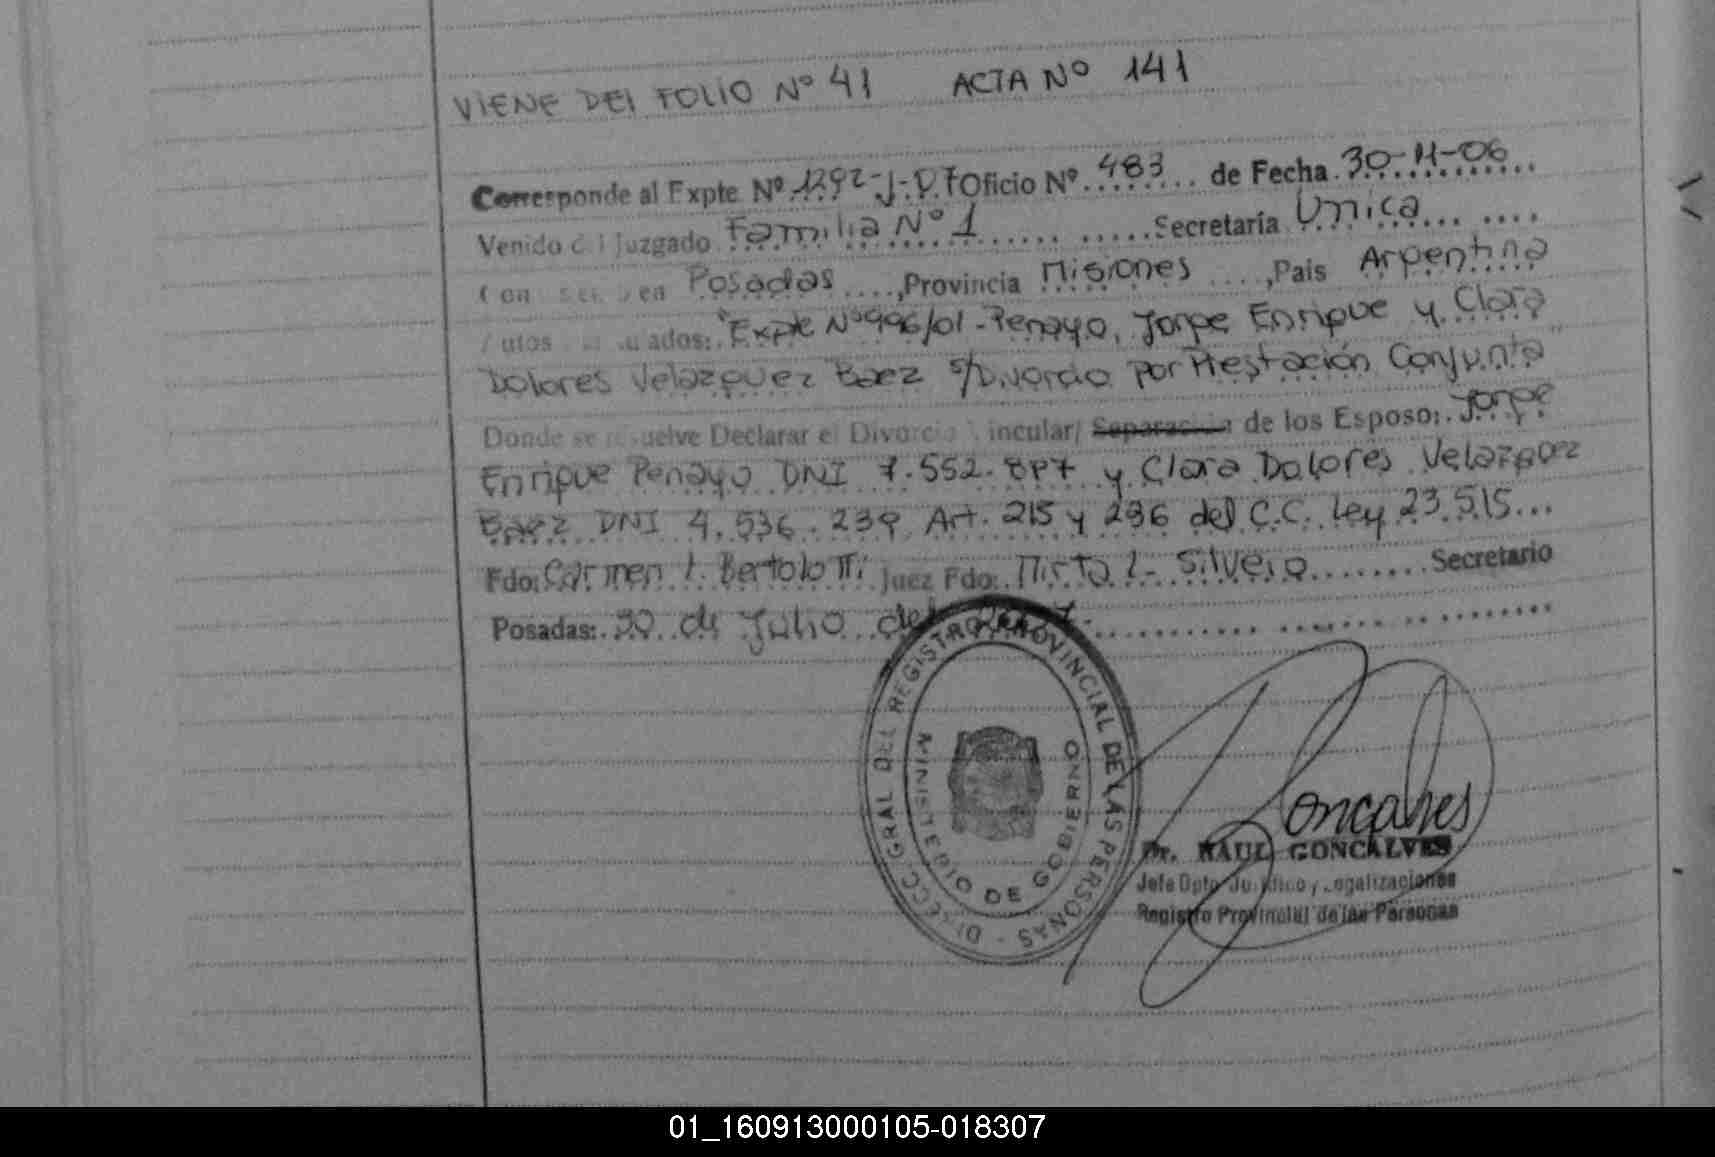 VIENE DEL FOLIO Nº 41 ACTA Nº 141
Corresponde al Expte Nº 1292-J-07 Oficio Nº 483 de Fecha 30-11-06
Venido del Juzgado Familia Nº 1 Secretaría Unica
Con en Posadas, Provincia Misiones, Pais Argentina
Autos "Expte Nº 996/01 - Penayo, Jorge Enrique y Clara
Dolores Velazquez Baez s/Divorcio por Prestación Conjunta"
Donde se resuelve Declarar el Divorcio Vincular/ Separación de los Esposo: Jorge
Enrique Penayo DNI 7.552. y Clara Dolores Velazquez
Baez DNI 4.536.239 Art. 215 y 236 del C.C. Ley 23.515
Fdo: Carmen L. Bertolotti Juez Fdo: Mirta L. Silvero Secretario
Posadas: 30 de Julio del 2007
DIRECC. GRAL DEL REGISTRO PROVINCIAL DE LAS PERSONAS -
MINISTERIO DE GOBIERNO
Goncalves
Dr. RAUL GONCALVES
Jefe Dpto. Jurídico y Legalizaciones
Registro Provincial de las Personas
01_160913000105-018307